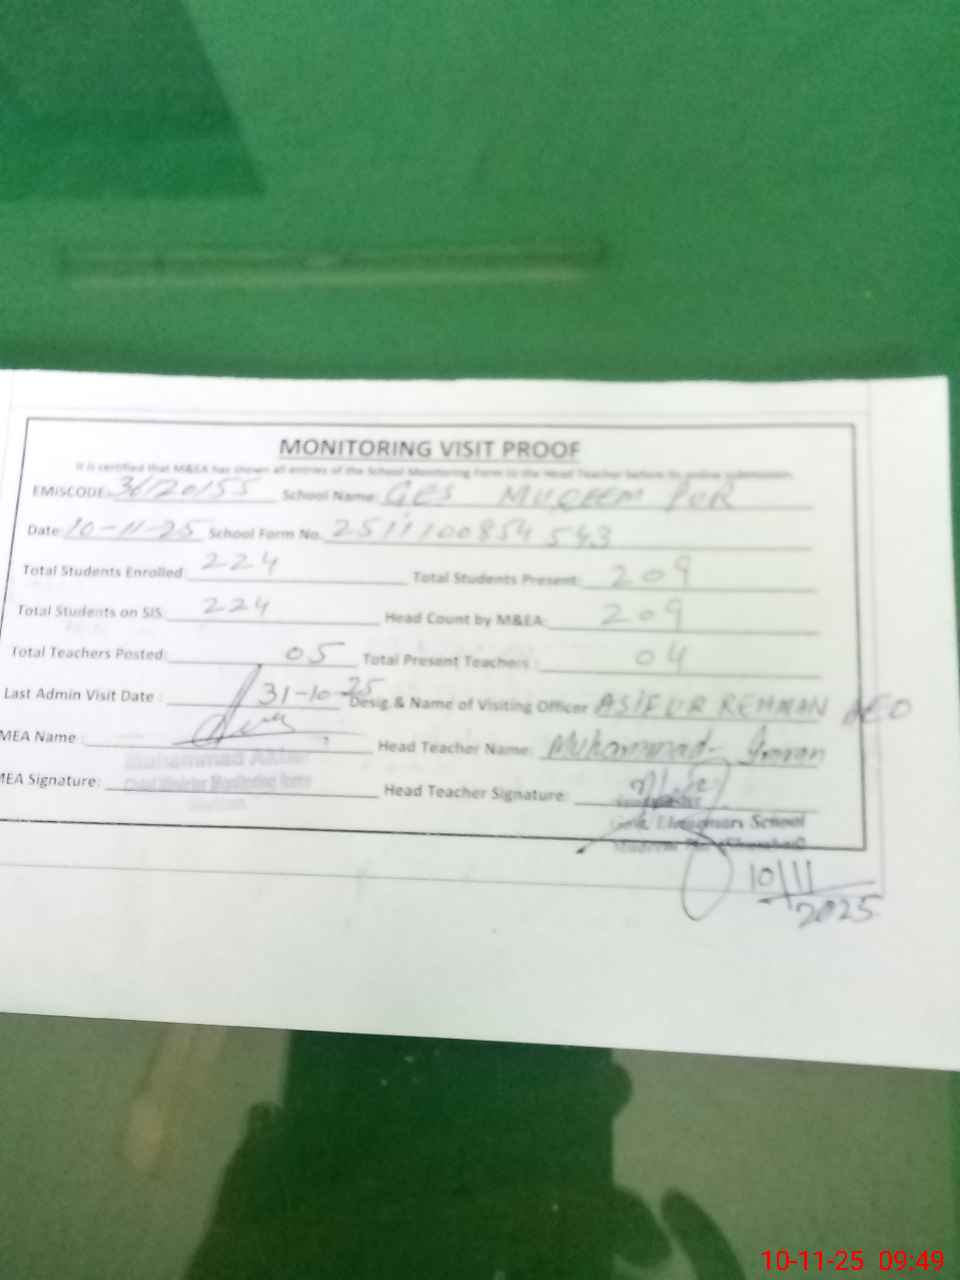 MONITORING VISIT PROOF
It is certified that M&EA has shown all entries of the School Monitoring Form to the Head Teacher before its online submission.
EMISCODE: 36120155 School Name: GES MUQEEM PUR
Date: 10-11-25 School Form No. 2511100854543
Total Students Enrolled: 224 Total Students Present: 209
Total Students on SIS: 224 Head Count by M&EA: 209
Total Teachers Posted: 05 Total Present Teachers: 04
Last Admin Visit Date : 31-10-25 Desig.& Name of Visiting Officer ASIF UR REHMAN AEO
MEA Name : Head Teacher Name: Muhammad Imran
Muhammad
MEA Signature: Head Teacher Signature:
Govt. Elementary School
10/11
2025
10-11-25 09:49